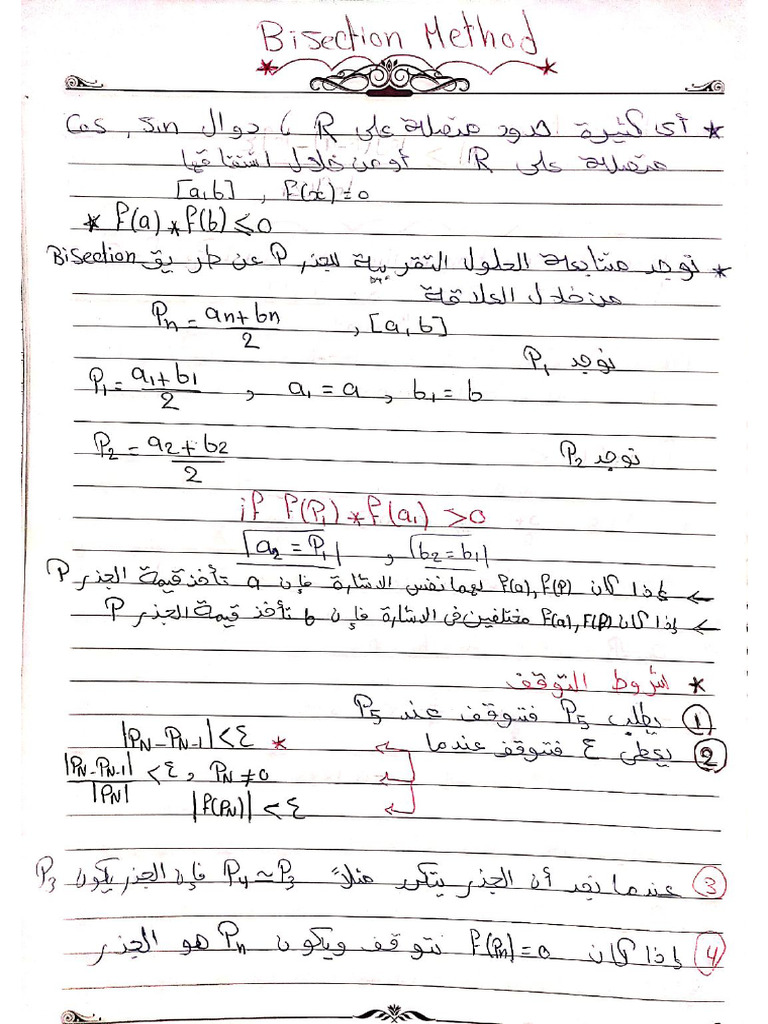 Bisection Method
* أى كثيرة حدود متصلة على R ، دوال Sin , Cos
متصلة على R أو عن خلال اشتقاقها
[a,b] , f(x)=0
* f(a) * f(b) ≤ 0
* توجد متتابعة الحلول التقريبية للجذر P عن طريق Bisection
من خلال العلاقة
Pn = an+bn/2 , [a,b]
نوجد P1
P1 = a1+b1/2 , a1 = a , b1 = b
نوجد P2
P2 = a2+b2/2
if f(P1) * f(a1) > 0
a2 = P1 , b2 = b1
← إذا كان f(a), f(P) لهما نفس الاشارة فإن a تأخذ قيمة الجذر P
← إذا كان f(a), F(P) مختلفين فى الاشارة فإن b تأخذ قيمة الجذر P
* شروط التوقف
① يطلب P5 فتتوقف عند P5
② يعطى ε فتتوقف عندما * |PN - PN-1| < ε
|PN - PN-1|/|PN| < ε , PN ≠ 0
|f(PN)| < ε
③ عندما نجد أن الجذر يتكرر مثلاً P4 ~ P3 فإن الجذر يكون P3
④ إذا كان f(Pn) = 0 نتوقف ويكون Pn هو الجذر